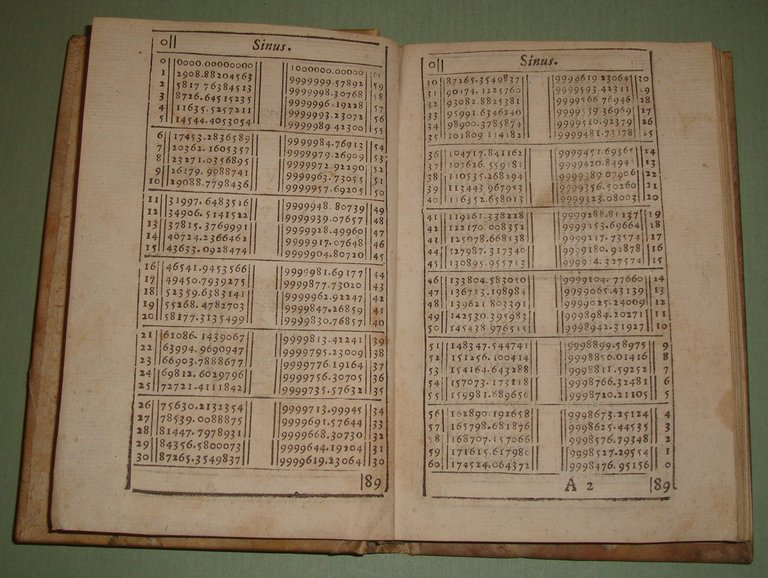 0 Sinus.
0 0000.00000000 1000000.00000
1 2908.88204563 9999999.57692 59
2 5817.76384513 9999998.30768 58
3 8726.64515235 9999996.19228 57
4 11635.5257211 9999993.23072 56
5 14544.4053054 9999989.42300 55
6 17453.2836589 9999984.76913 54
7 20362.1605357 9999979.26909 53
8 23271.0356895 9999972.92290 52
9 26179.9088741 9999963.73055 51
10 29088.7798436 9999957.69205 50
11 31997.6483516 9999948.80739 49
12 34906.5141522 9999939.07657 48
13 37815.3769991 9999928.49960 47
14 40724.2366462 9999917.07648 46
15 43633.0928474 9999904.80720 45
16 46541.9453566 9999981.69177 44
17 49450.7939275 9999877.73020 43
18 52359.6383141 9999962.92247 42
19 55268.4782703 9999847.26859 41
20 58177.3135499 9999830.76857 40
21 61086.1439067 9999813.42241 39
22 63994.9690947 9999795.23009 38
23 66903.7888677 9999776.19164 37
24 69812.6029796 9999756.30705 36
25 72721.4111842 9999735.57632 35
26 75630.2132354 9999713.99945 34
27 78539.0088875 9999691.57644 33
28 81447.7978931 9999668.30730 32
29 84356.5800073 9999644.19204 31
30 87265.3549837 9999619.23064 30
89
0 Sinus.
30 87265.3549837 9999619.23064 30
31 90174.1225760 9999593.42311 29
32 93082.8825381 9999566.76946 28
33 95991.6346240 9999539.36969 27
34 98900.3785874 9999510.92379 26
35 101809.114182 9999481.73178 25
36 104717.841162 9999451.69365 24
37 107626.559281 9999420.84941 23
38 110535.268294 9999389.07906 22
39 113443.967953 9999356.50260 21
40 116352.658013 9999323.08003 20
41 119261.338228 9999288.81137 19
42 122170.008352 9999253.69664 18
43 125078.668138 9999217.73574 17
44 127987.317340 9999180.92878 16
45 130895.955713 15
46 133804.583010 9999104.77660 14
47 136713.198984 9999065.43139 13
48 139621.803391 9999025.24009 12
49 142530.395983 9998984.20271 11
50 145438.976515 9998942.31927 10
51 148347.544741 9998899.58975 9
52 151256.100414 9998856.01416 8
53 154164.643288 9998811.59252 7
54 157073.173118 9998766.32481 6
55 159981.689656 9998720.21105 5
56 162890.192658 9998673.25124 4
57 165798.681876 9998625.44535 3
58 168707.157066 9998576.79348 2
59 171615.617980 9998527.29554 1
60 174524.064372 9998476.95156 0
A 2 89